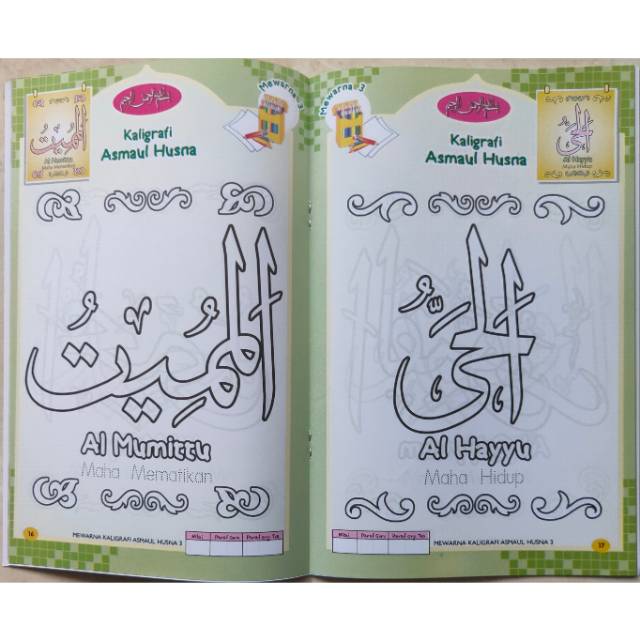 المُمِيْتُ
Al Mumittu
Maha Mematikan
بسم الله الرحمن الرحيم
Kaligrafi
Asmaul Husna
Mewarna 3
المُمِيْتُ
Al Mumittu
Maha Mematikan
16
MEWARNA KALIGRAFI ASMAUL HUSNA 3
Nilai
Paraf Guru
Paraf org. Tua
Mewarna 3
بسم الله الرحمن الرحيم
Kaligrafi
Asmaul Husna
الحَيُّ
Al Hayyu
Maha Hidup
الحَيُّ
Al Hayyu
Maha Hidup
Nilai
Paraf Guru
Paraf org. Tua
MEWARNA KALIGRAFI ASMAUL HUSNA 3
17